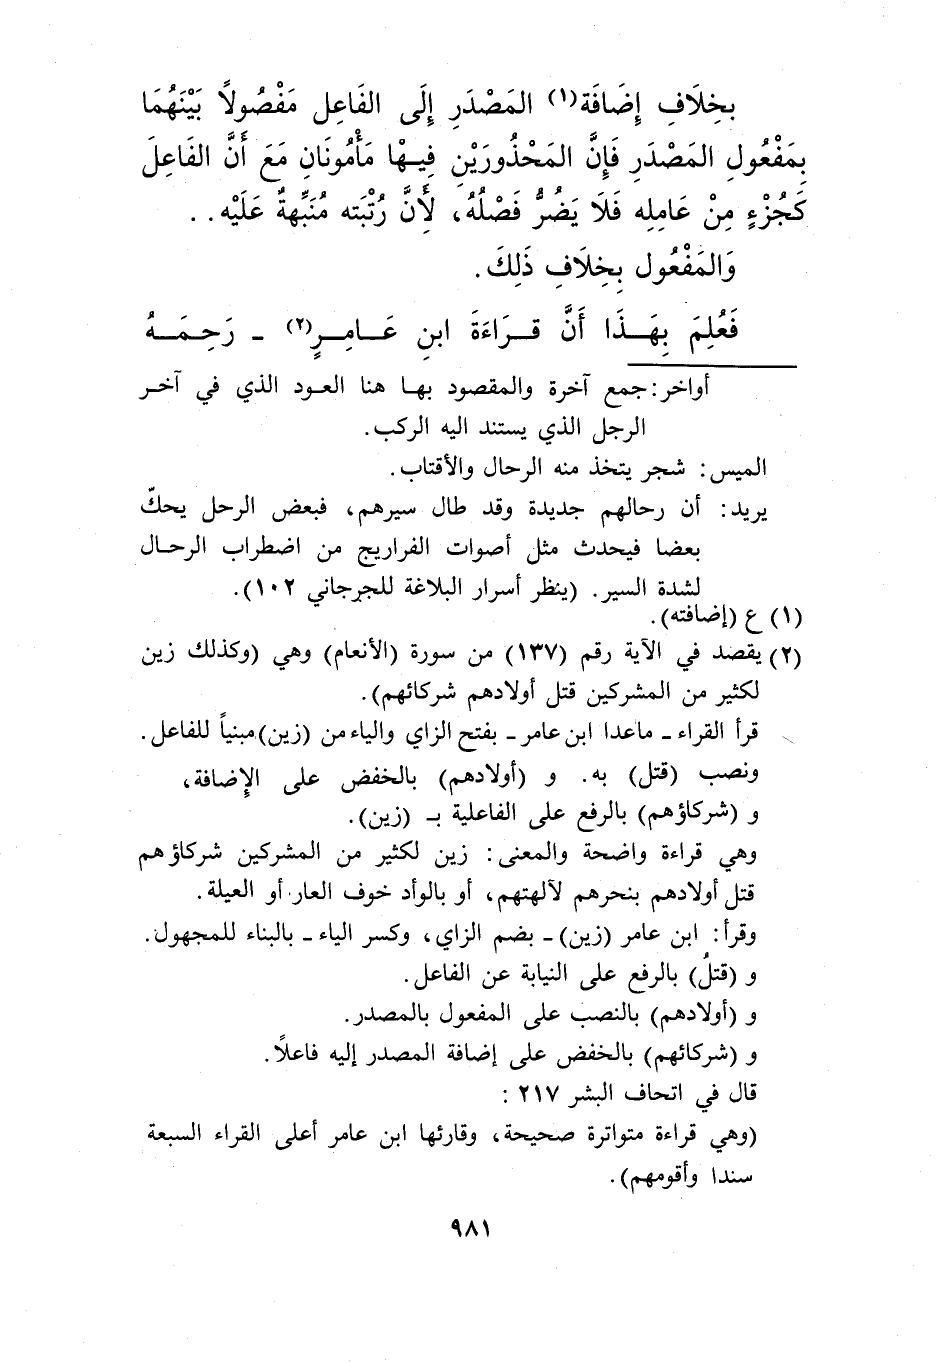 بِخِلَافِ إِضَافَة(١) المَصْدَرِ إِلَى الفَاعِلِ مَفْصُولاً بَيْنَهُمَا
بِمَفْعُولِ المَصْدَرِ فَإِنَّ المَحْذُورَيْنِ فِيهَا مَأْمُونَانِ مَعَ أَنَّ الفَاعِلَ
كَجُزْءٍ مِنْ عَامِلِه فَلَا يَضُرُّ فَصْلُهُ، لِأَنَّ رُتْبَته مُنَبِّهةٌ عَلَيْه . .
وَالمَفْعُول بِخِلَافِ ذَلِكَ .
فَعُلِمَ بِهَذَا أَنَّ قِرَاءَةَ ابنِ عَامِرٍ(٢) ـ رَحِمَهُ
أواخر : جمع آخرة والمقصود بها هنا العود الذي في آخر
الرجل الذي يستند اليه الركب .
الميس : شجر يتخذ منه الرحال والأقتاب .
يريد : أن رحالهم جديدة وقد طال سيرهم، فبعض الرحل يحكّ
بعضا فيحدث مثل أصوات الفراريج من اضطراب الرحال
لشدة السير . (ينظر أسرار البلاغة للجرجاني ١٠٢) .
(١) ع (إضافته) .
(٢) يقصد في الآية رقم (١٣٧) من سورة (الأنعام) وهي (وكذلك زين
لكثير من المشركين قتل أولادهم شركائهم) .
قرأ القراء ـ ماعدا ابن عامر ـ بفتح الزاي والياء من (زين) مبنياً للفاعل .
ونصب (قتل) به . و (أولادهم) بالخفض على الإضافة،
و (شركاؤهم) بالرفع على الفاعلية بـ (زين) .
وهي قراءة واضحة والمعنى : زين لكثير من المشركين شركاؤهم
قتل أولادهم بنحرهم لآلهتهم، أو بالوأد خوف العار أو العيلة .
وقرأ : ابن عامر (زين) ـ بضم الزاي، وكسر الياء ـ بالبناء للمجهول .
و (قتلُ) بالرفع على النيابة عن الفاعل .
و (أولادهم) بالنصب على المفعول بالمصدر .
و (شركائهم) بالخفض على إضافة المصدر إليه فاعلاً .
قال في اتحاف البشر ٢١٧ :
(وهي قراءة متواترة صحيحة، وقارئها ابن عامر أعلى القراء السبعة
سندا وأقومهم) .
٩٨١